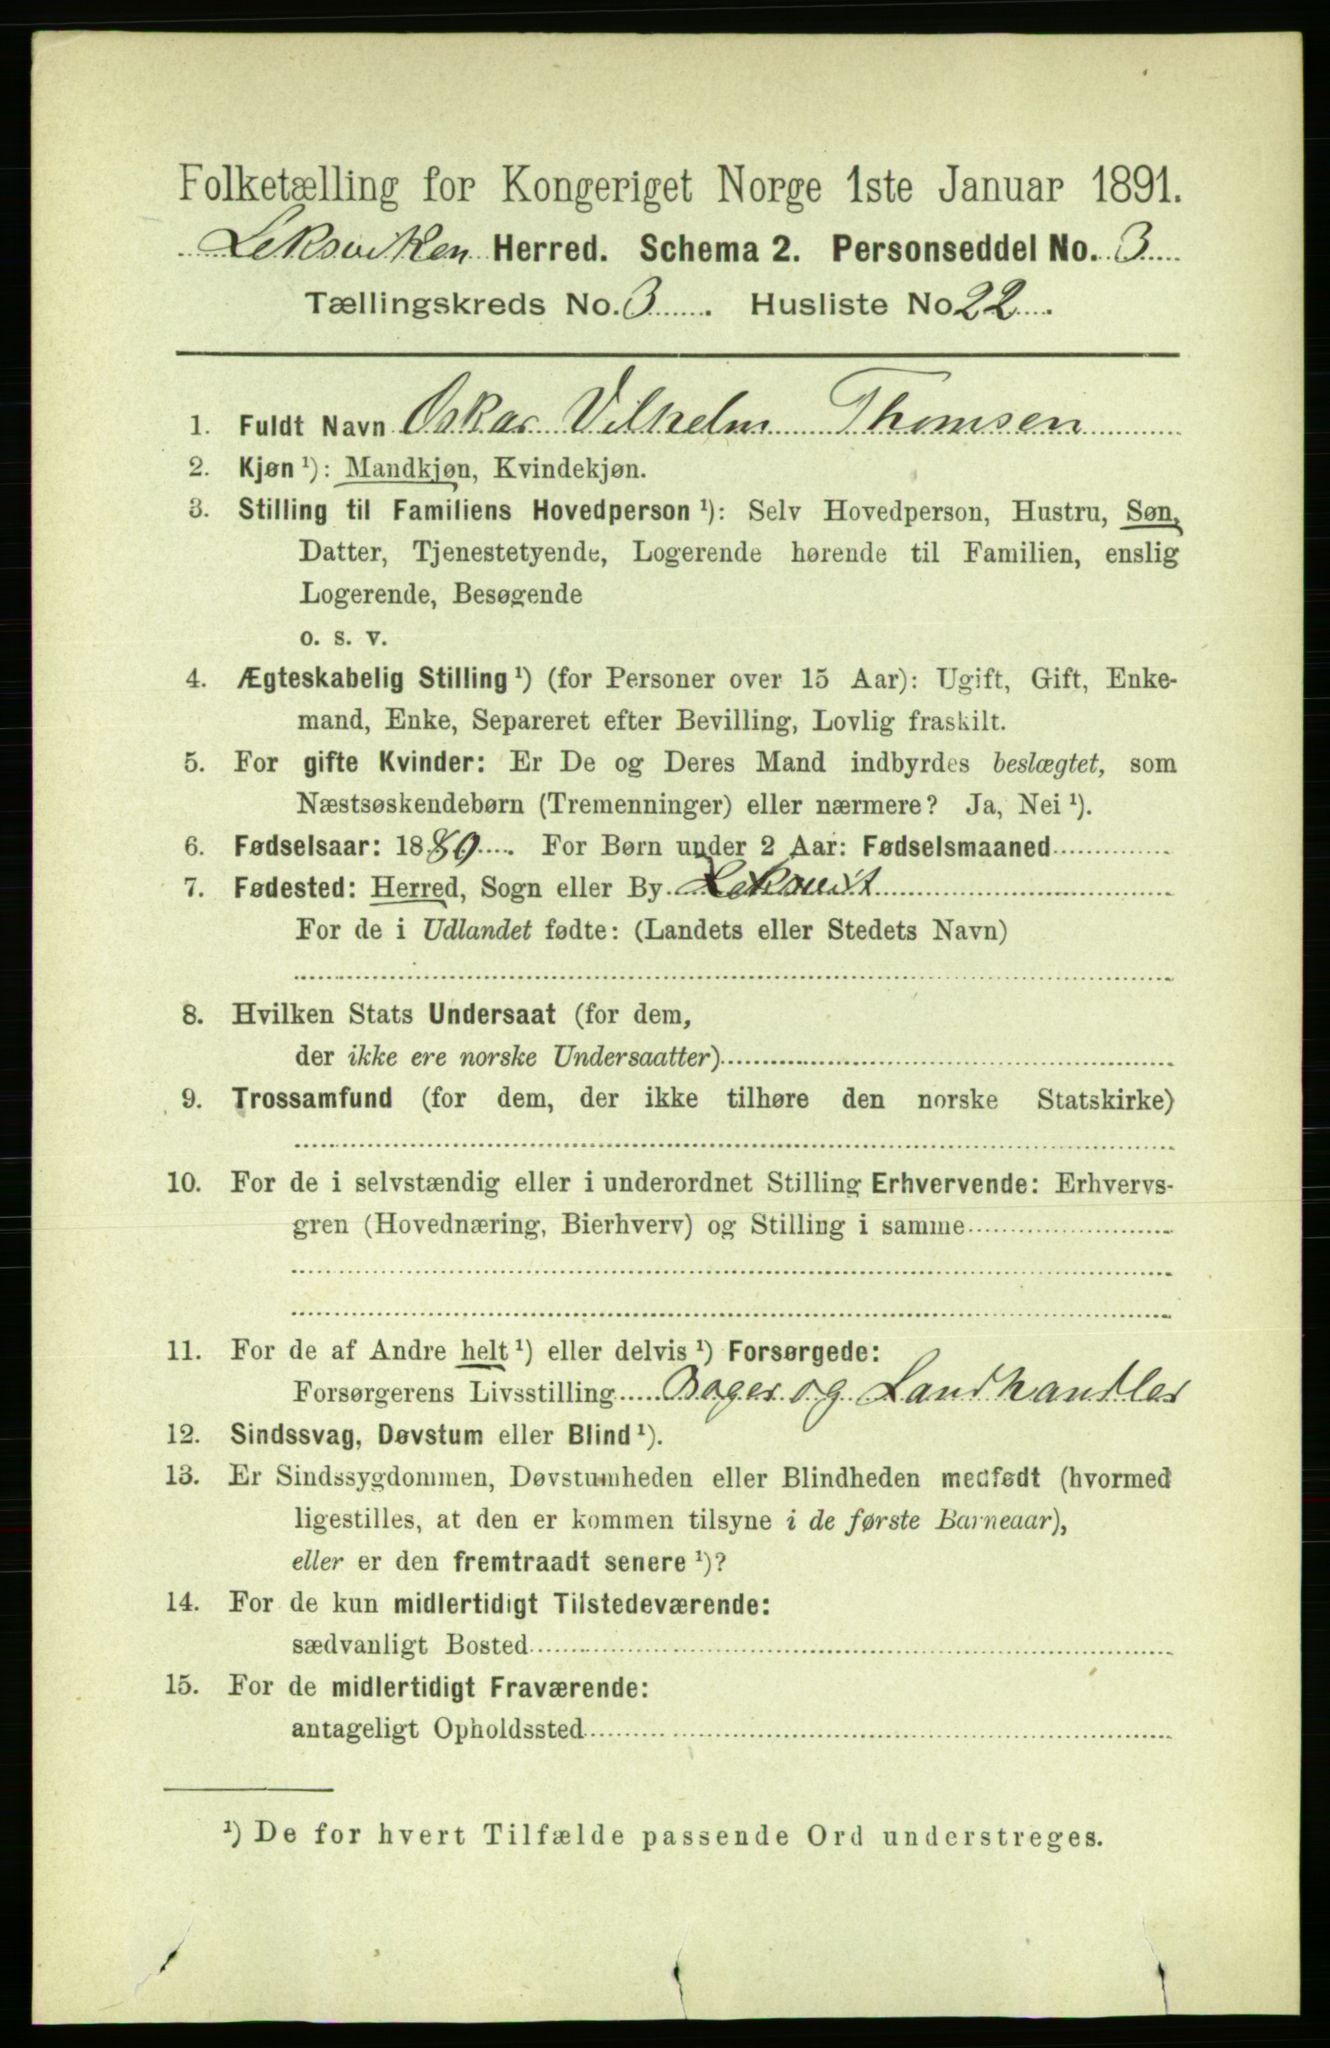 Folketælling for Kongeriget Norge 1ste Januar 1891.
Leksviken Herred. Schema 2. Personseddel No. 3
Tællingskreds No. 3. Husliste No 22.
1. Fuldt Navn Oskar Vilhelm Thomsen
2. Kjøn ¹): Mandkjøn, Kvindekjøn.
3. Stilling til Familiens Hovedperson ¹): Selv Hovedperson, Hustru, Søn,
Datter, Tjenestetyende, Logerende hørende til Familien, enslig
Logerende, Besøgende
o. s. v.
4. Ægteskabelig Stilling ¹) (for Personer over 15 Aar): Ugift, Gift, Enke-
mand, Enke, Separeret efter Bevilling, Lovlig fraskilt.
5. For gifte Kvinder: Er De og Deres Mand indbyrdes beslægtet, som
Næstsøskendebørn (Tremenninger) eller nærmere? Ja, Nei ¹).
6. Fødselsaar: 1889. For Børn under 2 Aar: Fødselsmaaned
7. Fødested: Herred, Sogn eller By. Leksvik
For de i Udlandet fødte: (Landets eller Stedets Navn)
8. Hvilken Stats Undersaat (for dem,
der ikke ere norske Undersaatter)
9. Trossamfund (for dem, der ikke tilhøre den norske Statskirke)
10. For de i selvstændig eller i underordnet Stilling Erhvervende: Erhvervs-
gren (Hovednæring, Bierhverv) og Stilling i samme
11. For de af Andre helt ¹) eller delvis ¹) Forsørgede:
Forsørgerens Livsstilling Bager og Landhandler
12. Sindssvag, Døvstum eller Blind ¹).
13. Er Sindssygdommen, Døvstumheden eller Blindheden medfødt (hvormed
ligestilles, at den er kommen tilsyne i de første Barneaar),
eller er den fremtraadt senere ¹)?
14. For de kun midlertidigt Tilstedeværende:
sædvanligt Bosted
15. For de midlertidigt Fraværende:
antageligt Opholdssted
¹) De for hvert Tilfælde passende Ord understreges.